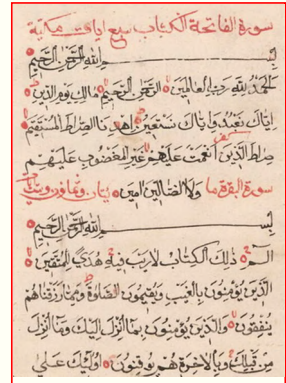 سورة الفاتحة الكتاب سبع ايات مكية
بسم الله الرحمن الرحيم
الحمد لله رب العالمين الرحمن الرحيم مالك يوم الدين
اياك نعبد واياك نستعين اهدنا الصراط المستقيم
صراط الذين انعمت عليهم غير المغضوب عليهم
سورة البقرة ولا الضالين امين مايتان وثمانون
بسم الله الرحمن الرحيم
الم ذلك الكتاب لا ريب فيه هدي للمتقين
الذين يؤمنون بالغيب ويقيمون الصلوة ومما رزقناهم
ينفقون والذين يؤمنون بما انزل اليك وما انزل
من قبلك وبالاخرة هم يوقنون اولئك علي